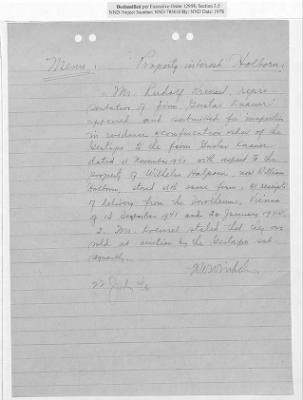 Declassified per Executive Order 12958, Section 3.5
NND Project Number: NND 785010 By: NND Date: 1978
Memo: Property interest Holborn:
1. Mr. Rudolf Bressel, repre
sentative of firm Gustav Knauer
appeared and submitted for inspection
in evidence a confiscation order of the
Gestapo to the firm Gustav Knauer
dated 11 November 1940 with respect to the
property of Wilhelm Halpern, now William
Holborn, stored with same form,
of delivery from the Dorotheum, Vienna
of 13 September 1941 and 20 January 1942.
2. Mr. stated that were
sold at auction by the Gestapo sub-
sequently.
22 July